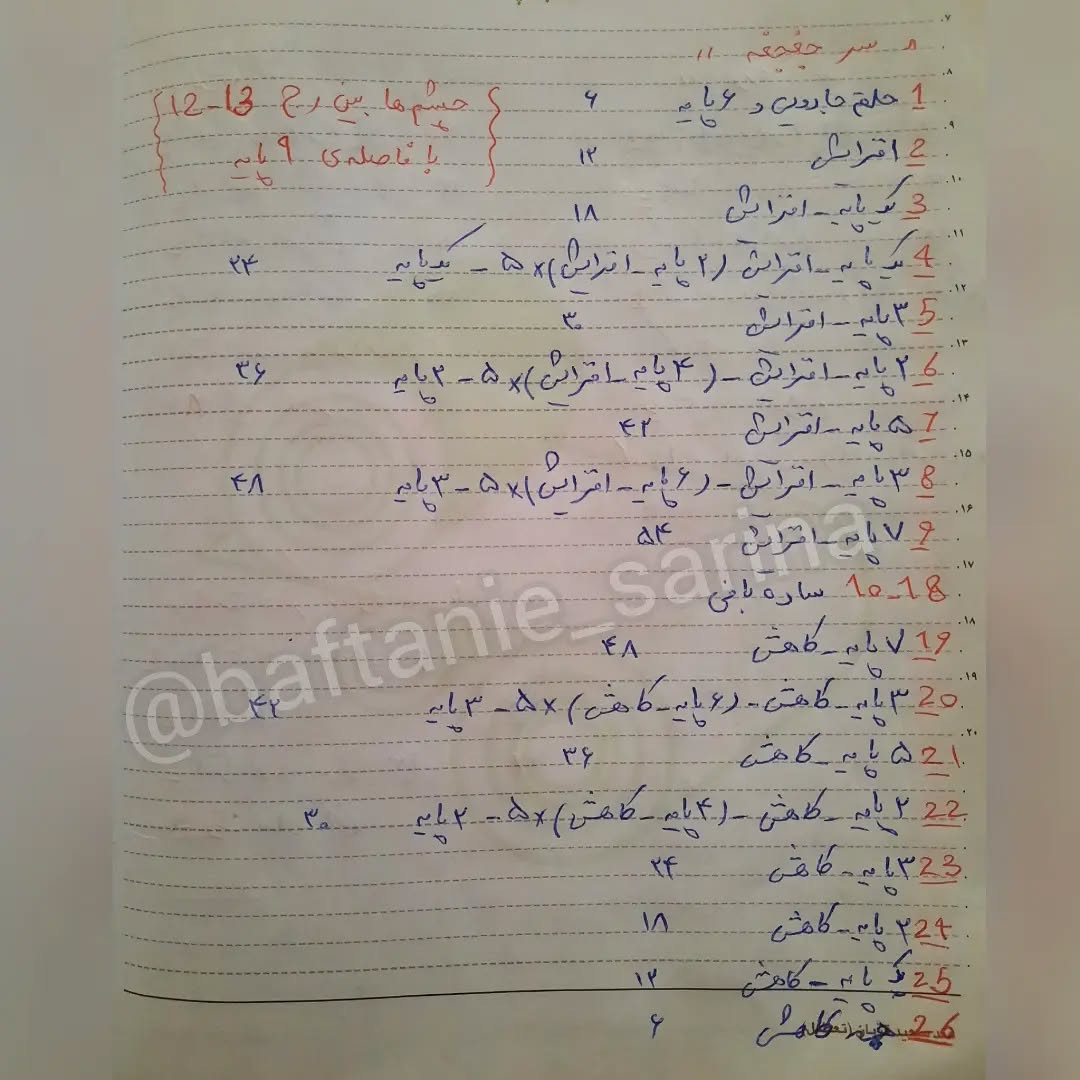 سر جغجغه
1 حلقه جادویی و ۶ پایه ۶
{ چشم ها بین رج 13-12
با فاصله‌ی ۹ پایه }
2 افزایش ۱۲
3 یک پایه - افزایش ۱۸
4 یک پایه - افزایش (۲ پایه - افزایش)×۵ - یک پایه ۲۴
5 ۳ پایه - افزایش ۳۰
6 ۲ پایه - افزایش - (۴ پایه - افزایش)×۵ - ۲ پایه ۳۶
7 ۵ پایه - افزایش ۴۲
8 ۳ پایه - افزایش - (۶ پایه - افزایش)×۵ - ۳ پایه ۴۸
9 ۷ پایه - افزایش ۵۴
10-18 ساده بافی
19 ۷ پایه - کاهش ۴۸
20 ۳ پایه - کاهش - (۶ پایه - کاهش)×۵ - ۳ پایه ۴۲
21 ۵ پایه - کاهش ۳۶
22 ۲ پایه - کاهش - (۴ پایه - کاهش)×۵ - ۲ پایه ۳۰
23 ۳ پایه - کاهش ۲۴
24 ۲ پایه - کاهش ۱۸
25 یک پایه - کاهش ۱۲
26 کاهش ۶
@baftanie_sarina